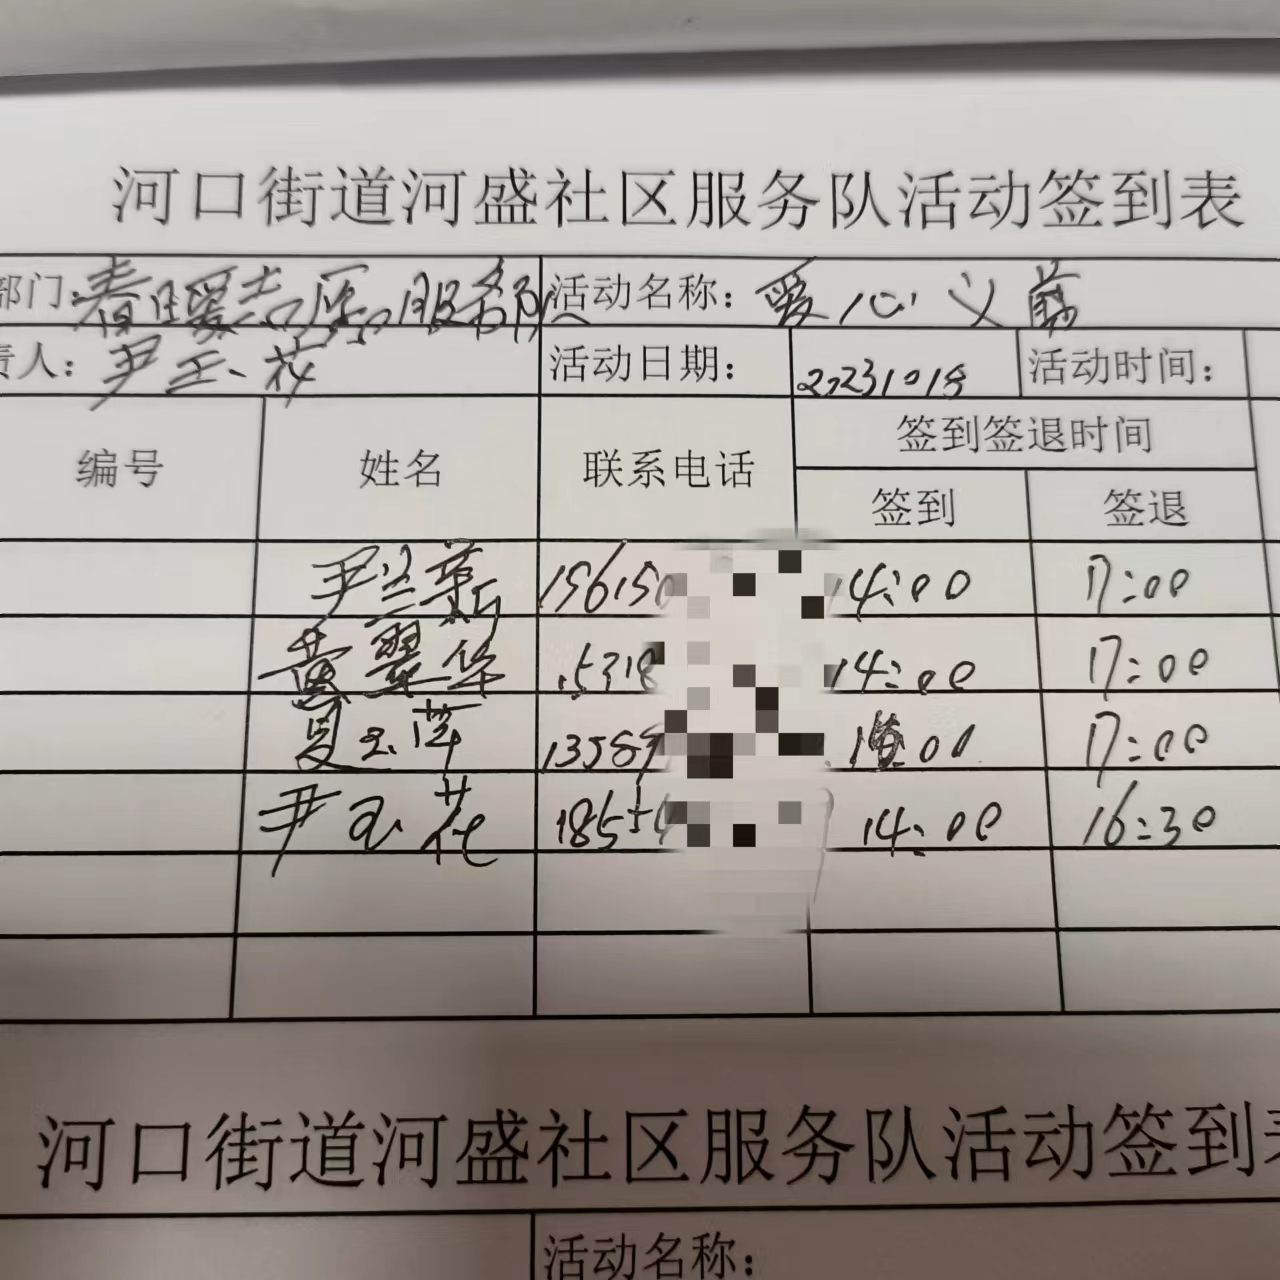 河口街道河盛社区服务队活动签到表
部门: 春暖志愿服务队 活动名称: 爱心义剪
责人: 尹玉花 活动日期: 20231018 活动时间:
编号 姓名 联系电话 签到签退时间
签到 签退
尹兰新 156150 14:00 17:00
黄翠华 15318 14:00 17:00
夏玉萍 13589 00 17:00
尹玉花 18554 14:00 16:30
河口街道河盛社区服务队活动签到表
活动名称: